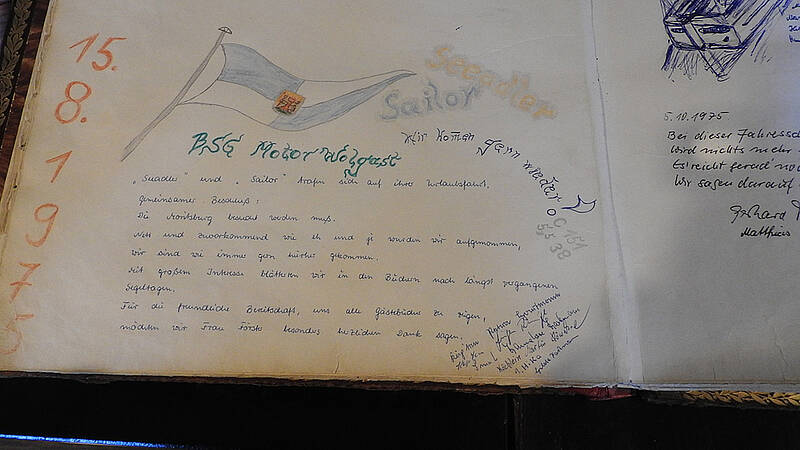 15.
8.
1
9
7
5
Seeadler
Sailor
BSG Motor Wolgast
Wir komen gern wieder
OC 151
55 38
„Seeadler" und „Sailor" trafen sich auf ihrer Urlaubsfahrt.
Gemeinsamer Beschluß:
Die Moritzburg besucht werden muß.
Nett und zuvorkommend wie eh und je wurden wir aufgenommen,
wir sind wie immer gern hierher gekommen.
Mit großem Interesse blätterten wir in den Büchern nach längst vergangenen
Segeltagen.
Für die freundliche Bereitschaft, uns alle Gästebücher zu zeigen,
möchten wir Frau Förste besonders herzlichen Dank sagen.
5.10.1975.
Bei dieser Jahressch
Wird nichts mehr
Es reicht gerad no
Wir sagen darauf
Gerhard
Matthies